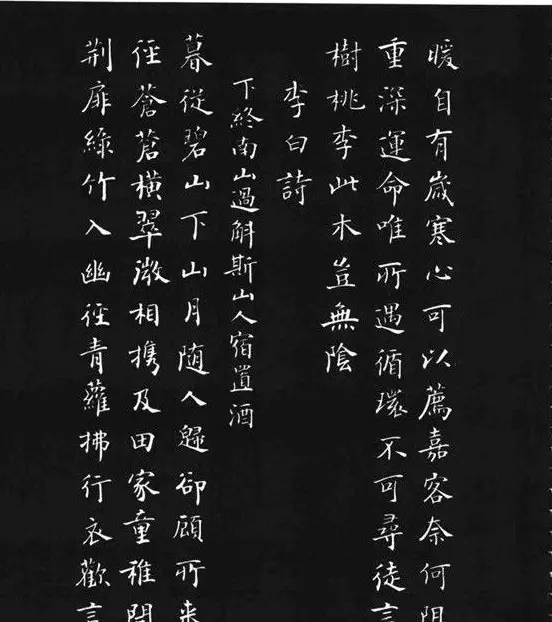 暖自有歲寒心可以薦嘉客奈何阻
重深運命唯所遇循環不可尋徒言
樹桃李此木豈無陰
李白詩
下終南山過斛斯山人宿置酒
暮從碧山下山月随人歸卻顧所来
徑蒼蒼橫翠微相携及田家童稚開
荆扉綠竹入幽徑青蘿拂行衣歡言